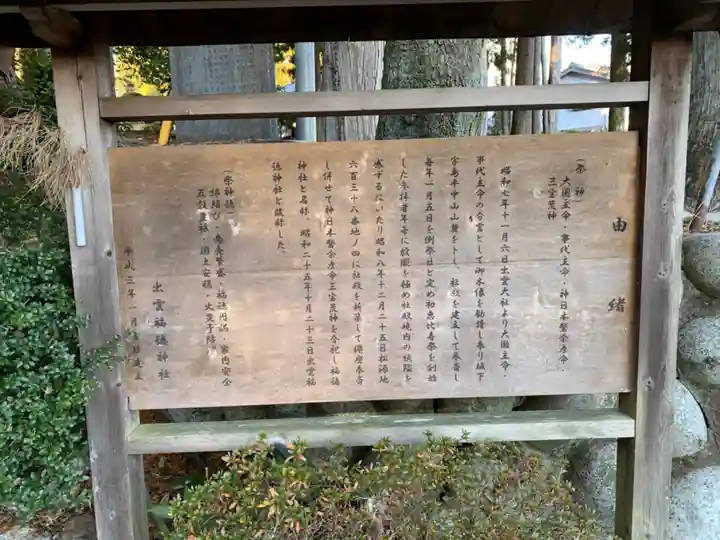 由緒
(祭神)
大國主命・事代主命・神日本磐余彦命・
三宝荒神
昭和七年十一月六日出雲大社より大國主命・
事代主命の分霊として御木像を勧請し奉り城下
字島平中山山麓をトし、社殿を建立して奉斎し
毎年一月五日を例祭日と定め初恵比寿祭を創始
した参拝者年毎に殷賑を極め社殿境内の狭隘を
感ずるにいたり昭和八年十二月二十五日松源地
六百三十八番地ノ四に社殿を新築して御座奉斎
し併せて神日本磐余彦命三宝荒神を合祀し福徳
神社と名称、昭和二十五年十月二十三日出雲福
徳神社と改称した。
(祭神徳)
縁結び・商売繁盛・福徳円満・家内安全
五穀豊穣・国土安穏・火災予防
出雲福徳神社
平成三年一月 建立